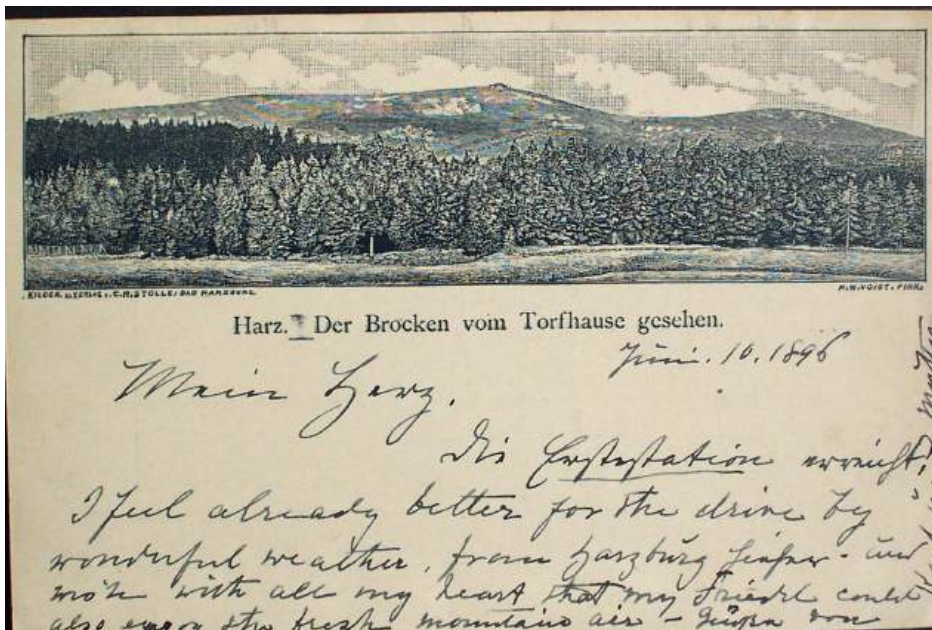 BILDER. u. VERLAG v. C.R. STOLLE, BAD HARZBURG.
Harz. Der Brocken vom Torfhause gesehen.
Juni. 10. 1896
Mein Herz.
Die Erstestation erreicht!
I feel already better for the drive by
wonderful weather, from Harzburg hieher - und
with all my heart that my Friedel could
also enjoy the fresh mountain air - Grüsse von